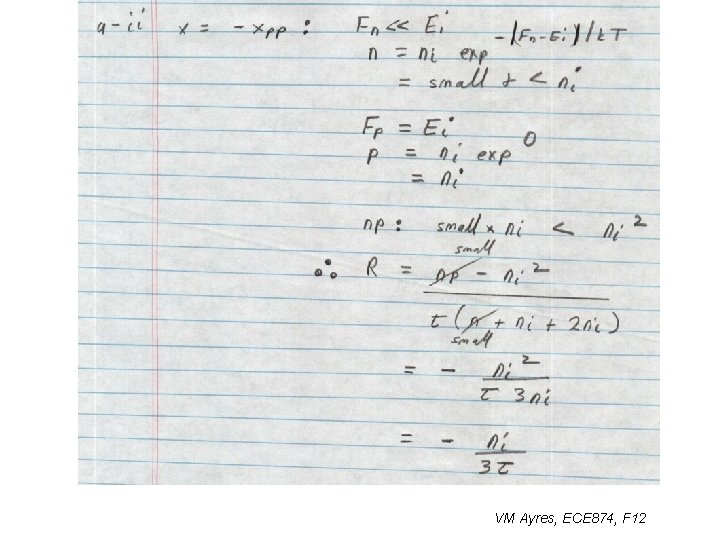 a-ii x = - xpp : Fn << Ei
n = ni exp -|Fn-Ei|/kT
= small & < ni
Fp = Ei
p = ni exp 0
= ni
np : small x ni < ni²
small
∴ R = np - ni²
τ (n + ni + 2ni)
small
= - ni²
τ 3ni
= - ni
3τ
VM Ayres, ECE 874, F12